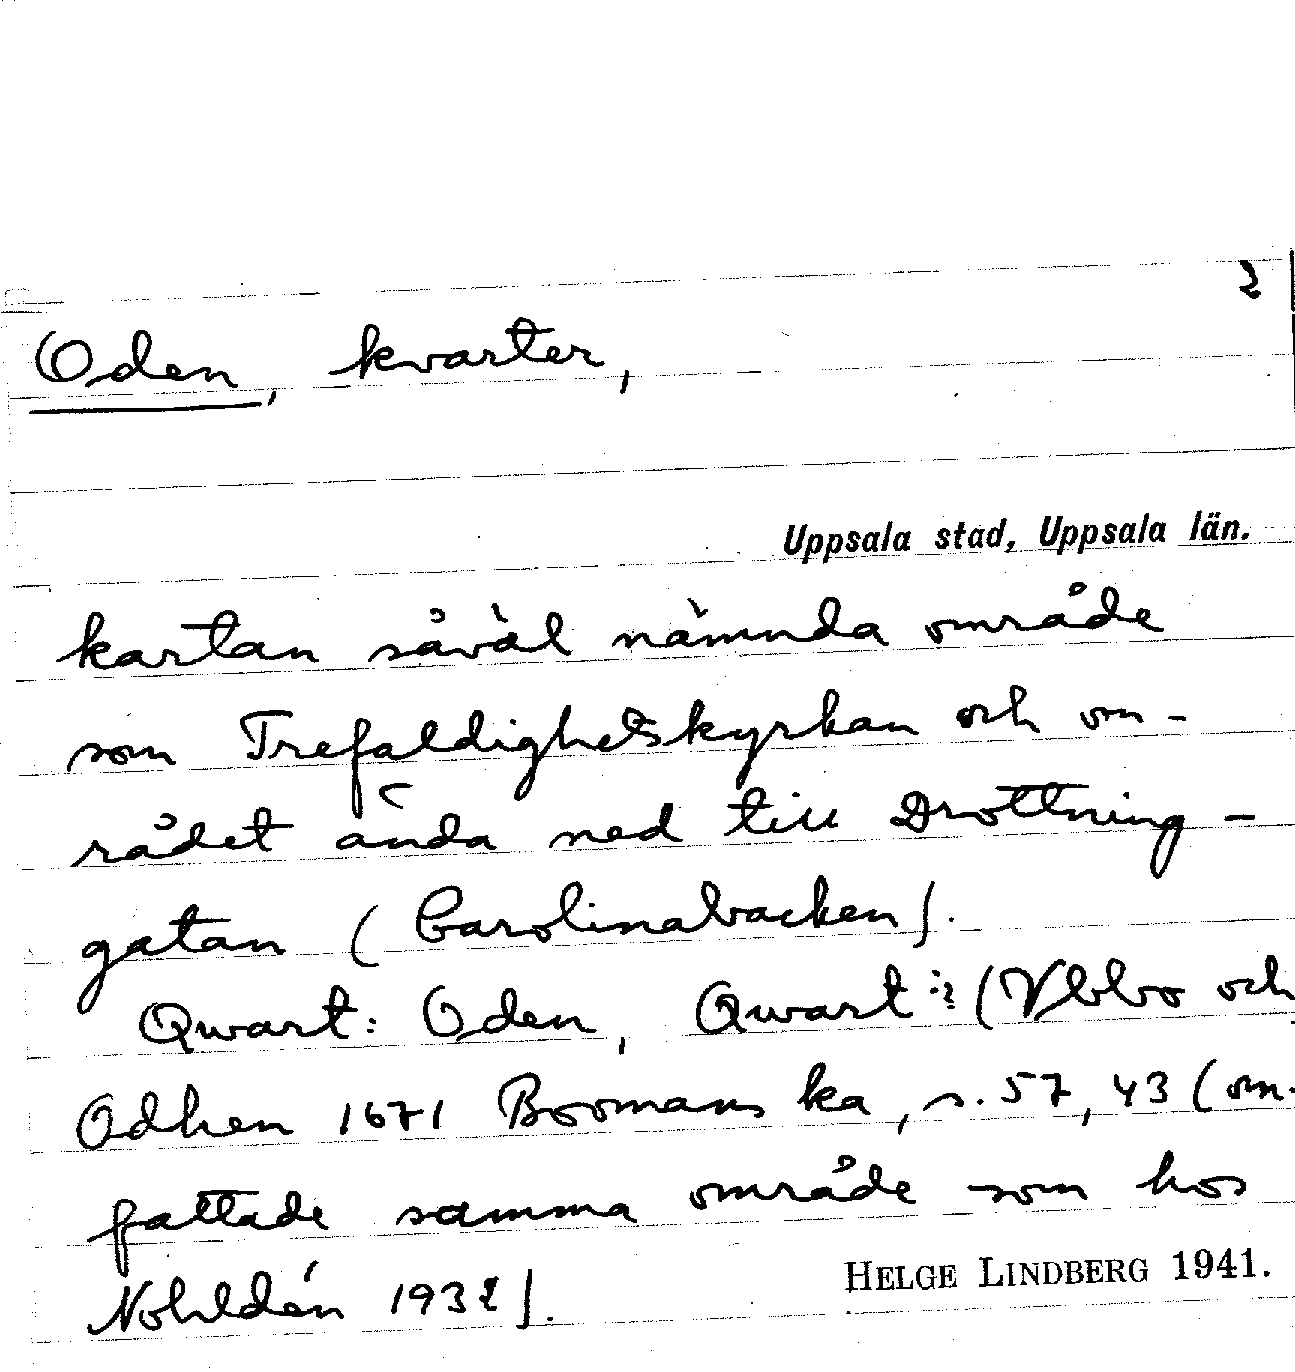 2
Oden, kvarter,
Uppsala stad, Uppsala län.
kartan såväl nämnda område
som Trefaldighetskyrkan och om-
rådet ända ned till Drottning-
gatan (Carolinabacken).
Qwart: Oden, Qwart:? (Vbbo och
Odhen 1671 Boomans ka, s. 57, 43 (om-
fattade samma område som hos
Nohldén 1932).
HELGE LINDBERG 1941.